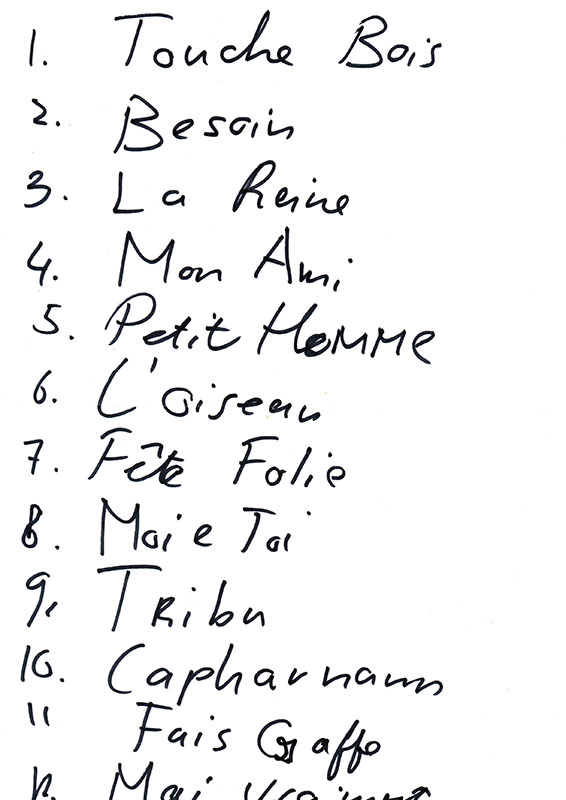 1. Touche Bois
2. Besoin
3. La Reine
4. Mon Ami
5. Petit Homme
6. L'oiseau
7. Fête Folie
8. Moi e Toi
9. Tribu
10. Capharnaum
11 Fais Gaffe
12. Moi